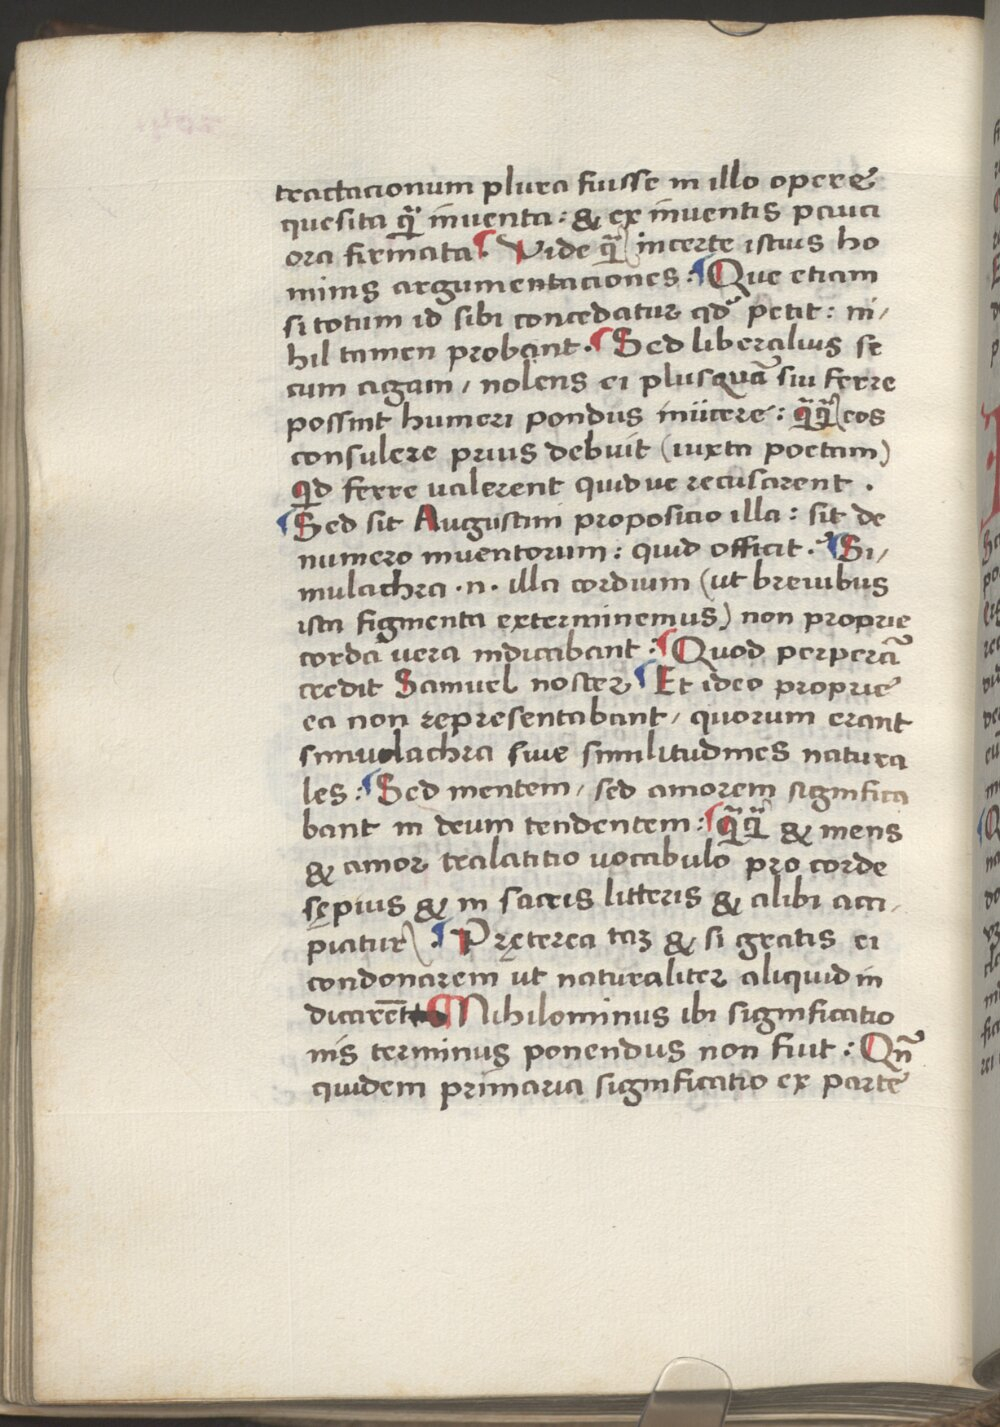 tractacionum plura fuisse in illo opere
quesita qᷓ inventa: & ex inventis pauci
ora firmata. Vide qᷓ incerte istius ho
minis argumentaciones: Que etiam
si totum id sibi concedatur qdᷓ petit: ni/
hil tamen probant. Sed liberalius se
cum agam, nolens ei plusquā sui ferre
possint humeri pondus iniicere: qᷓqᷓ eos
consulere prius debuit (iuxta poetam)
Qd ferre valerent quid ve recusarent.
Sed sit Augustini proposicio illa: sit de
numero inventorum: quid officit. Si/
mulachra .n. illa cordium (ut brevibus
ista figmenta exterminemus) non proprie
corda vera indicabant: Quod perperā
credit Samuel noster Et ideo proprie
ea non representabant, quorum erant
simulachra sive similitudines natura
les: Sed mentem, sed amorem significa
bant in deum tendentem: qᷓqᷓ & mens
& amor tralatitio vocabulo pro corde
sępius & in sacris litteris & alibi acci,
piatur): Pręterea taꝫ & si gratis ei
condonarem ut naturaliter aliquid in
dicarēt Nihilominus ibi significatio
nis terminus ponendus non fuit: Qn̄
quidem primaria significatio ex parte